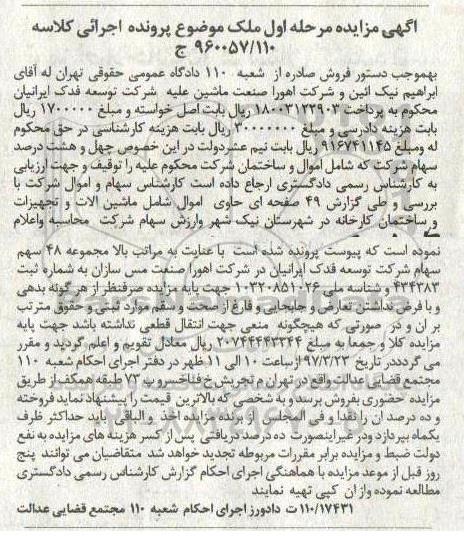 آگهی مزایده مرحله اول ملک موضوع پرونده اجرائی کلاسه
۹۶۰۰۵۷/۱۱۰ ج
بهموجب دستور فروش صادره از شعبه ۱۱۰ دادگاه عمومی حقوقی تهران له آقای
ابراهیم نیک ائین و شرکت اهورا صنعت ماشین علیه شرکت توسعه فدک ایرانیان
محکوم به پرداخت ۱۸۰۰۳۱۲۲۹۰۳ ریال بابت اصل خواسته و مبلغ ۱۷۰۰۰۰۰ ریال
بابت هزینه دادرسی و مبلغ ۳۰۰۰۰۰۰۰ ریال بابت هزینه کارشناسی در حق محکوم
له ومبلغ ۹۱۶۷۴۱۱۴۵ ریال بابت نیم عشردولت در این خصوص چهل و هشت درصد
سهام شرکت که شامل اموال و ساختمان شرکت محکوم علیه را توقیف و جهت ارزیابی
به کارشناس رسمی دادگستری ارجاع داده است کارشناس سهام و اموال شرکت با
بررسی و طی گزارش ۴۹ صفحه ای حاوی اموال شامل ماشین الات و تجهیزات
و ساختمان کارخانه در شهرستان نیک شهر وارزش سهام شرکت محاسبه واعلام
نموده است که پیوست پرونده شده است با عنایت به مراتب بالا مجموعه ۴۸ سهم
سهام شرکت توسعه فدک ایرانیان در شرکت اهورا صنعت مس سازان به شماره ثبت
۴۳۴۳۸۳ و شناسه ملی ۱۰۳۲۰۸۵۱۰۲۶ جهت پایه مزایده صرفنظر از هر گونه بدهی
و با فرض نداشتن تعارض و جابجایی و فارغ از صحت و سقم موارد ثبتی و حقوق مترتب
بر ان و در صورتی که هیچگونه منعی جهت انتقال قطعی نداشته باشد جهت پایه
مزایده کلا و جمعا به مبلغ ۲۰۷۴۴۴۴۳۳۴۴ ریال معادل تقویم و اعلام گردید و مقرر
می گردددر تاریخ ۹۷/۳/۲۳ ازساعت ۱۰ الی ۱۱ ظهر در دفتر اجرای احکام شعبه ۱۱۰
مجتمع قضایی عدالت واقع در تهران م تجریش خ فناخسرو پ ۷۳ طبقه همکف از طریق
مزایده حضوری بفروش برسد و به شخصی که بالاترین قیمت را پیشنهاد نماید فروخته
و ده درصد ان را نقدا و فی المجلس از برنده مزایده اخذ و الباقی باید حداکثر ظرف
یکماه بپردازد ودر غیراینصورت ده درصد دریافتی پس از کسر هزینه های مزایده به نفع
دولت ضبط و مزایده برابر مقررات مربوطه تجدید خواهد شد متقاضیان می توانند پنج
روز قبل از موعد مزایده با هماهنگی اجرای احکام گزارش کارشناس رسمی دادگستری
مطالعه نموده واز ان کپی تهیه نمایند
۱۱۰/۱۷۴۳۱ ت دادورز اجرای احکام شعبه ۱۱۰ مجتمع قضایی عدالت